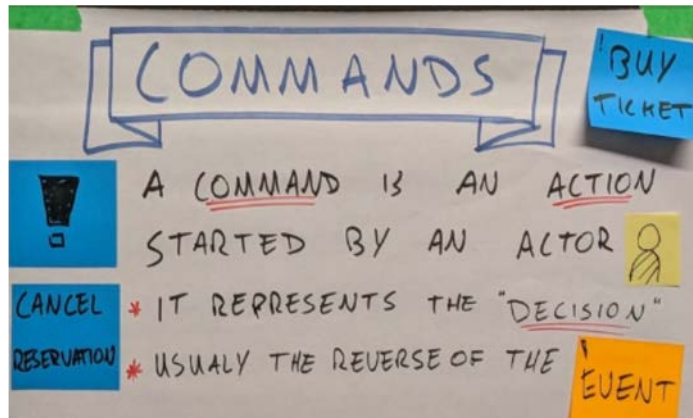 COMMANDS
! BUY
TICKET
!
A COMMAND IS AN ACTION
STARTED BY AN ACTOR
CANCEL
RESERVATION
* IT REPRESENTS THE "DECISION"
* USUALY THE REVERSE OF THE
EVENT